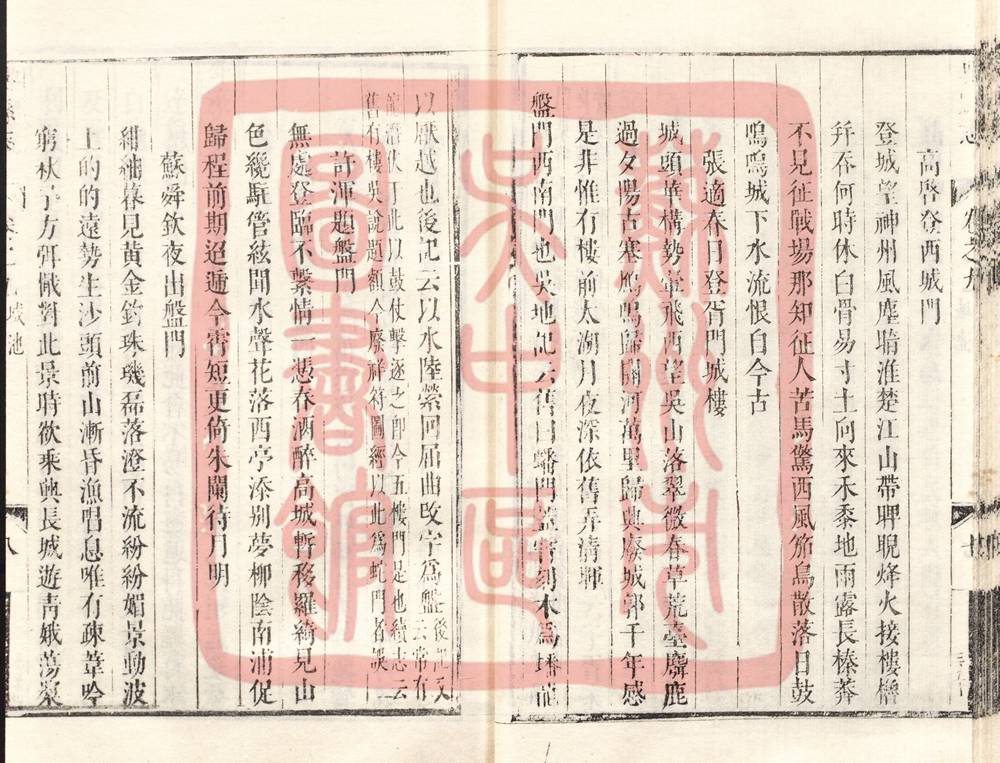 高啓登西城門
登城望神州風塵暗淮楚江山帶睥睨烽火接樓櫓
幷吞何時休白骨易寸土向來禾黍地雨露長榛莽
不見征戰場那知征人苦馬驚西風笳鳥散落日鼓
嗚嗚城下水流恨自今古
張適春日登胥門城樓
城頭華構勢翬飛西望吳山落翠微春草荒臺麋鹿
過夕陽古塞鴈鴻歸關河萬里歸興廢城郭千年感
是非惟有樓前太湖月夜深依舊弄清輝
盤門西南門也吳地記云舊曰蟠門蓋嘗刻木爲蟠龍
以厭越也後記云以水陸縈回屈曲改字爲盤後記又云常有
舊有樓吳說題額今廢祥符圖經以此爲蛇門者誤
許渾題盤門
無處登臨不繫情一憑春酒醉高城暫移羅綺見山
色纔駐管絃聞水聲花落西亭添別夢柳陰南浦促
歸程前期迢遞今宵短更倚朱闌待月明
蘇舜欽夜出盤門
紺紬暮見黃金鈎珠璣磊落澄不流紛紛媚景動波
上的的遠勢生沙頭前山漸昏漁唱息唯有疎葦吟
窮秋予方弭檝對此景時欲乘興長城遊靑娥蕩槳
城池
八